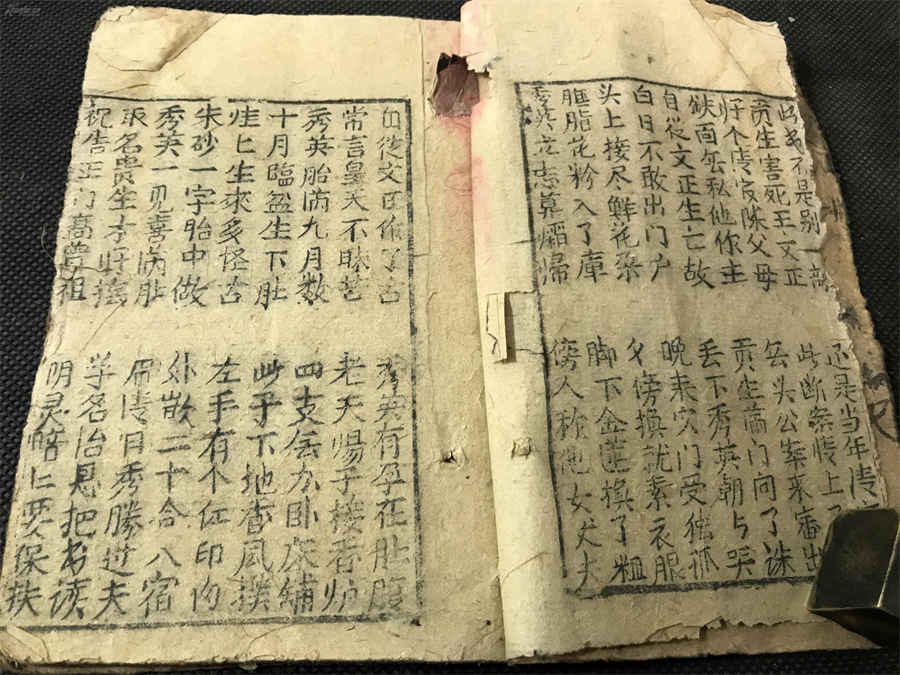 此书不是别一部 还是当年传
贡生害死王文正 此断案情上了
好个传家陈父母 無头公案来審出
缺面無私他你主 贡生满门问了诛
自从文正生亡故 丢下秀英朝与哭
白日不敢出门户 晚来门受孤
头上接尽鲜花朶 傍换就素衣服
胭脂花粉入了庫 脚下金莲换了粗
秀英立志真孀帰 傍人称他女丈夫
自從文正作了古 秀英有孕在肚腹
常言皇天不昧苦 老天賜子接香炉
秀英胎满九月数 四支無力卧床铺
十月臨盆生下肚 此子下地杳風撲
娃匕生來多怪古 左手有个红印肉
朱砂一字胎中做 外散二十合八宿
秀英一见喜满肚 眉清目秀勝过夫
取名贵生才好接 学名治恩把书读
祝告王门高曾祖 阴灵暗匕要保扶